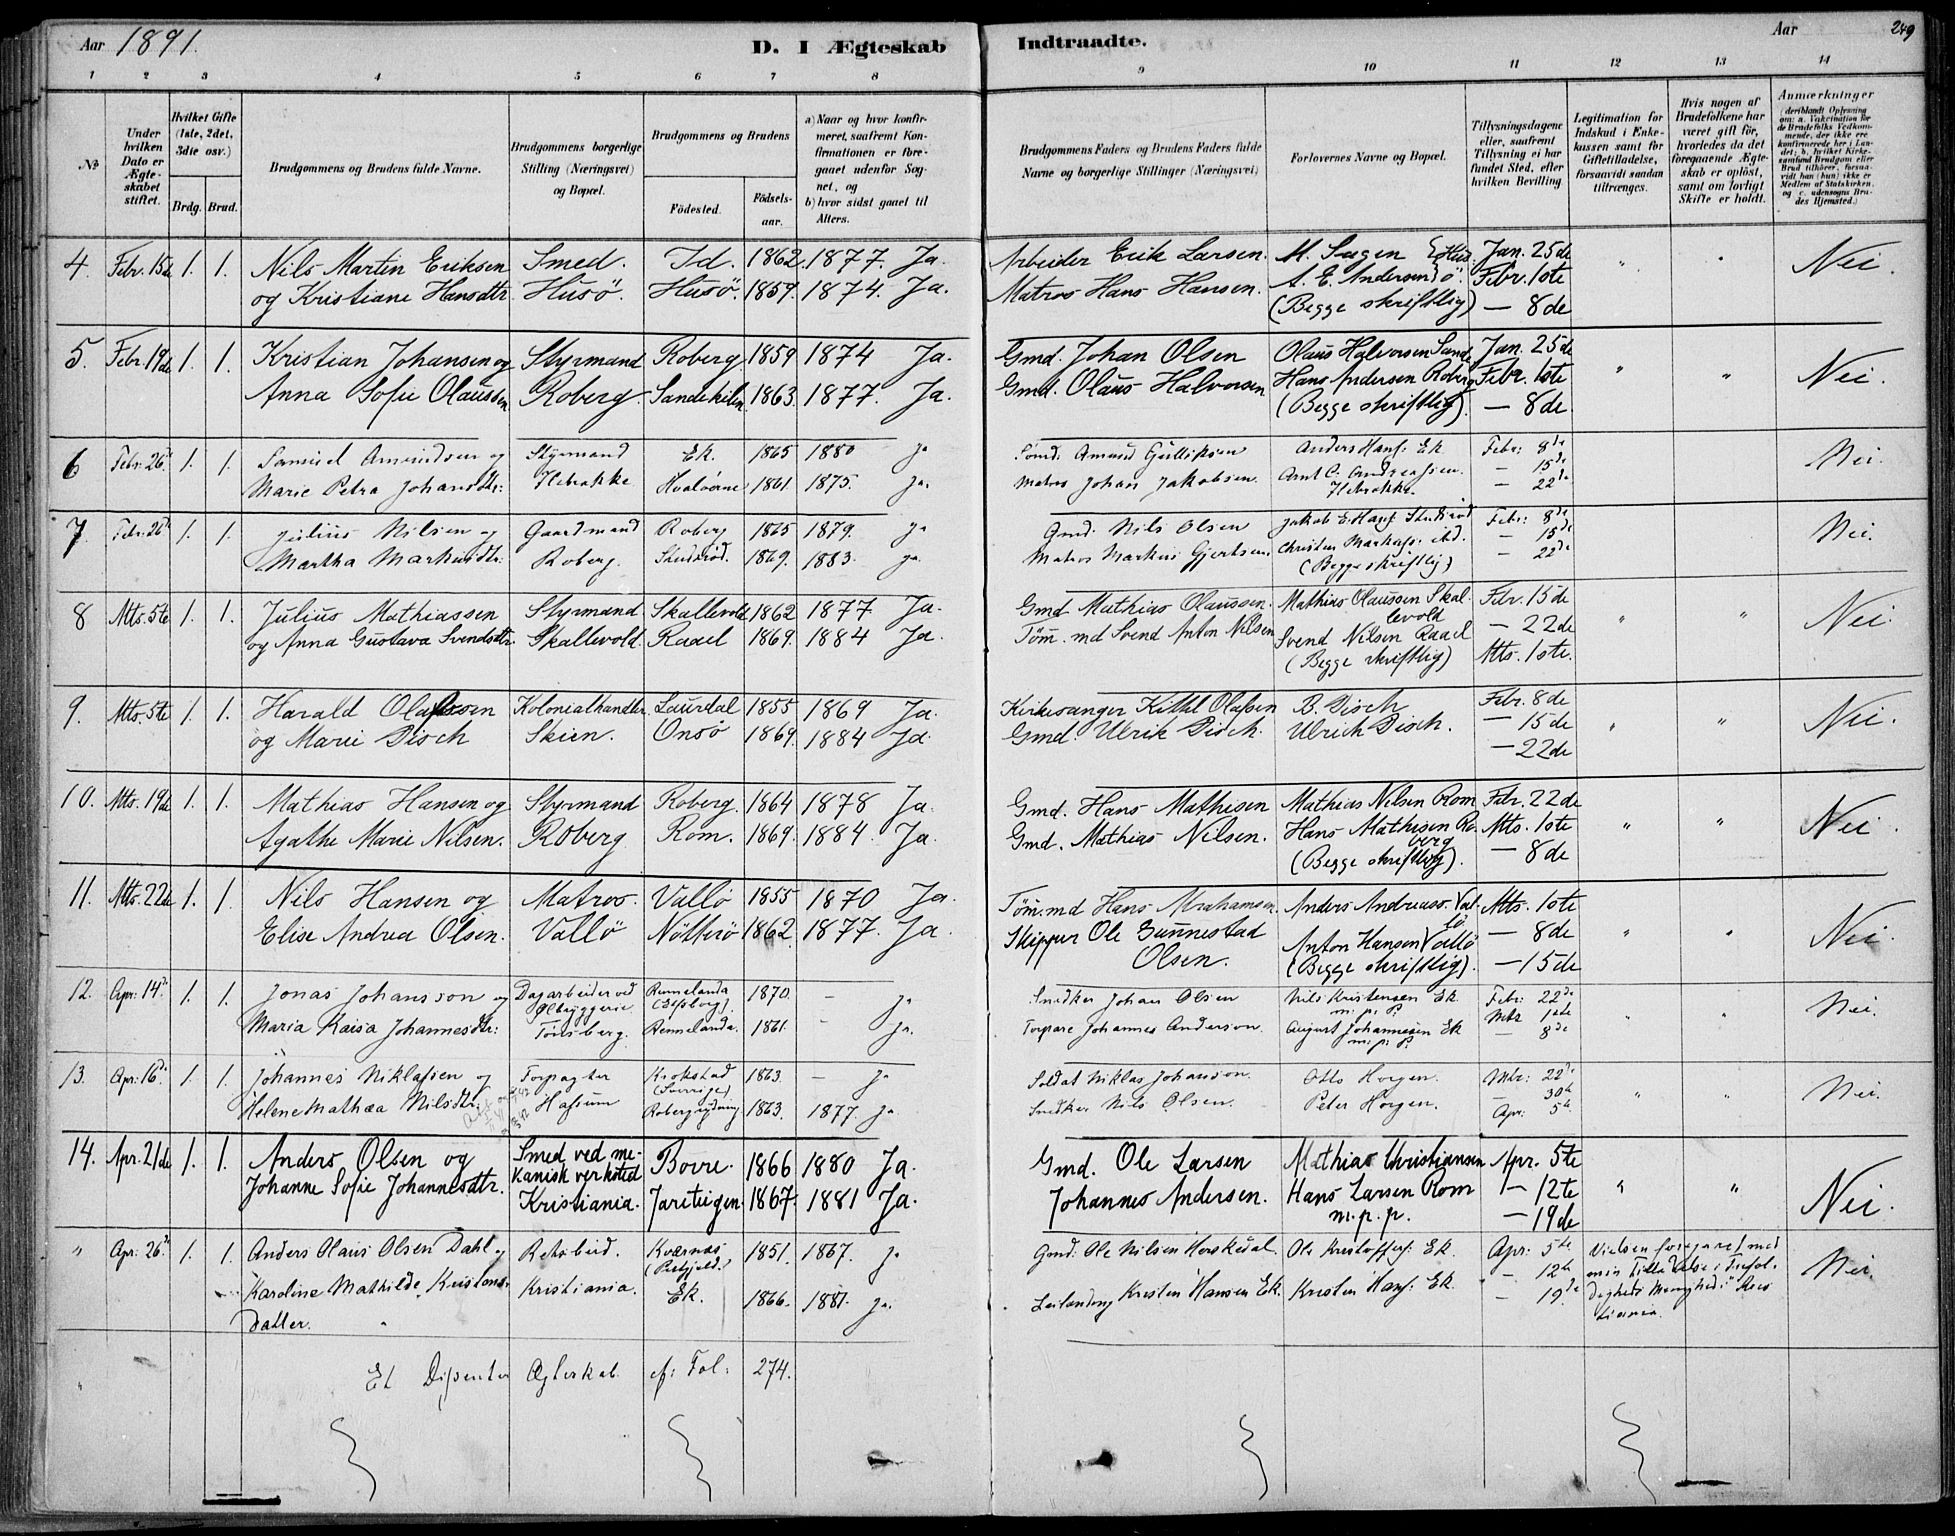 Aar 1891.
D. I Ægteskab Indtraadte.
Aar 249
1 2 3 4 5 6 7 8 9 10 11 12 13 14
№
Under hvilken Dato er Ægteskabet stiftet.
Hvilket Gifte (1ste, 2det, 3die osv.)
Brdg. Brud.
Brudgommens og Brudens fulde Navne.
Brudgommens borgerlige Stilling (Næringsvei) og Bopæl.
Brudgommens og Brudens
Fødested. Fødsels-aar.
a) Naar og hvor konfirmeret, saafremt Konfirmationen er foregaaet udenfor Sognet, og
b) hvor sidst gaaet til Alters.
Brudgommens Faders og Brudens Faders fulde Navne og borgerlige Stillinger (Næringsvei)
Forlovernes Navne og Bopæl.
Tillysningsdagene eller, saafremt Tillysning ei har fundet Sted, efter hvilken Bevilling.
Legitimation for Indskud i Enkekassen samt for Giftetilladelse, forsaavidt saadan tiltrænges.
Hvis nogen af Brudefolkene har været gift før, hvorledes da det foregaaende Ægteskab er opløst, samt om lovligt Skifte er holdt.
Anmærkninger (deriblandt Oplysning om: a. Vakcination for de Brudefolks Vedkommende, der ikke ere konfirmerede her i Landet; b. hvilket Kirkesamfund Brudgom eller Brud tilhører, forsaavidt han (hun) ikke er Medlem af Statskirken, og c. udensogns Brudes Hjemsted.)
4. Febr. 15de 1. 1. Nils Martin Eriksen Smed. Id. 1862. 1877. Ja. Arbeider Erik Larsen. M. Sugen Jan. 25de " " Nei.
og Kristiane Hansdtr. Husö. Husö. 1859. 1874. Ja. Matros Hans Hansen. A. E. Andersen Husö. Febr. 1ste
(Begge skriftlig) — 8de
5. Febr. 19de 1. 1. Kristian Johansen og Styrmand Roberg 1859 1874 Ja. Gmd. Johan Olsen Olaus Halvorsen Sande Jan. 25de " " Nei.
Anna Sofie Olaussen Roberg. Sandekilen 1863. 1877. Ja. Gmd. Olaus Halvorsen Hans Andersen Roberg Febr. 1ste
(Begge skriftlig). — 8de
6 Febr: 26de 1. 1. Samuel Amundsen og Styrmand Ek. 1865 1880 ja Amund Gulliksen Anders Hans: Ek Febr: 8de Nei.
Marie Petra Johansdtr: Ilebrække Hvalvørne 1861. 1875. ja. Matros Johan Jakobsen. Arnt C. Andreassen. — 15de
Ilebrække — 22de
7. Febr: 26de 1. 1. Julius Nilsen og Gaardmand Roberg 1865 1879. ja Gmd. Nils Olsen Jakob E. Hans: Febr: 8de Nei.
Martha Markusdtr: Roberg. 1869. 1883. ja. Matros Markus Gjertsen. Christen Markuss: ibd. — 15de
(Begge skriftlig) — 22de
8 Mts. 5te 1. 1. Julius Mathiassen Styrmand Skallevold 1862 1877 Ja. Gmd Mathias Olaussen. Mathias Olaussen Skallevold Febr. 15de " " Nei.
og Anna Gustava Svendsdtr. Skallevold. Raael 1869. 1884 Ja. Töm. md Svend Anton Nilsen Svend Nilsen Raael — 22de
(Begge skriftlig) Mts. 1ste.
9. Mts. 5te 1. 1. Harald Olafssen Kolonialhandler. Laurdal 1855 1869 Ja. Kirkesanger Kittel Olafsen B. Disch Febr. 8de " " Nei.
og Marie Disch Skien. Onsö 1869. 1884 Ja. Gmd. Ulrik Disch. Ulrich Disch. — 15de
— 22de
10. Mts. 19de 1. 1. Mathias Hansen og Styrmand Roberg. 1864 1878 Ja. Gmd. Hans Mathisen Mathias Nilsen Rom Febr. 22de " " Nei.
Agathe Marie Nilsen. Roberg Rom. 1869. 1884. Ja. Gmd. Mathias Nilsen. Hans Mathisen Roberg Mts. 1ste
(Begge skriftlig). — 8de
11. Mts. 22de 1. 1. Nils Hansen og Matros Vallö 1855 1870 Ja. Töm. md Hans Abrahamsen. Anders Andreass. Vallö Mts. 1ste " " Nei.
Elise Andrea Olsen. Vallö Nötterö 1862 1877. Ja. Skipper Ole Gunnestad Anton Hansen Vallö — 8de
Olsen. (Begge skriftlig). — 15de
12. Apr: 14de 1. 1. Jonas Johansson og Dagarbeider ved Rennelanda 1870. — ja Snedker Johan Olsen Nils Kristensen Ek Febr: 22de " " Nei.
Ølbryggerie (Elfsborg). m. p. P. Mts 1ste
Maria Kaisa Johannesdtr: Tönsberg. Rennelanda. 1861. — ja. Torpare Johannes Anderson. August Johannesen Ek — 8de
m. p. P.
13. Apr: 16de 1. 1. Johannes Niklassen og Forpagter Krokstad 1863. — ja Soldat Niklas Johanson. Otto Horgen. Mts: 22de " " Nei.
(Sverige) — 30te
Helene Mathea Nilsdtr. Hassum Robergrydning 1863. 1877. ja Snedker Nils Olsen. Peter Horgen. Apr: 5te
14. Apr. 21de 1. 1. Anders Olsen og Smed ved me- Borre. 1866 1880 Ja. Gmd. Ole Larsen Mathias Christiansen Apr. 5te " " Nei.
Johanne Sofie Johannesdtr. kanisk verksted Jareteigen 1867. 1881 Ja. Johannes Andersen. Hans Larsen Rom — 12te
Kristiania. m. p. p. — 19de
" Apr: 26de 1. 1. Anders Olaus Olsen Dahl og Rebsbeid. Kværnæs 1851. 1867. ja Gmd: Ole Nilsen Horskedal. Ole Kristoffers: Ek. Apr: 5te Vielsen foregaaet med Nei.
Karoline Mathilde Kristens- Kristiania. Ek. 1866. 1881. ja. Leilænding Kristen Hansen Ek. Kristen Hans: Ek. — 12te min Tilladelse i Trefol-
datter. — 19de digheds Menighed: Kris
tiania.
" Et Dissenter Ægteskab cf: Fol: 274.